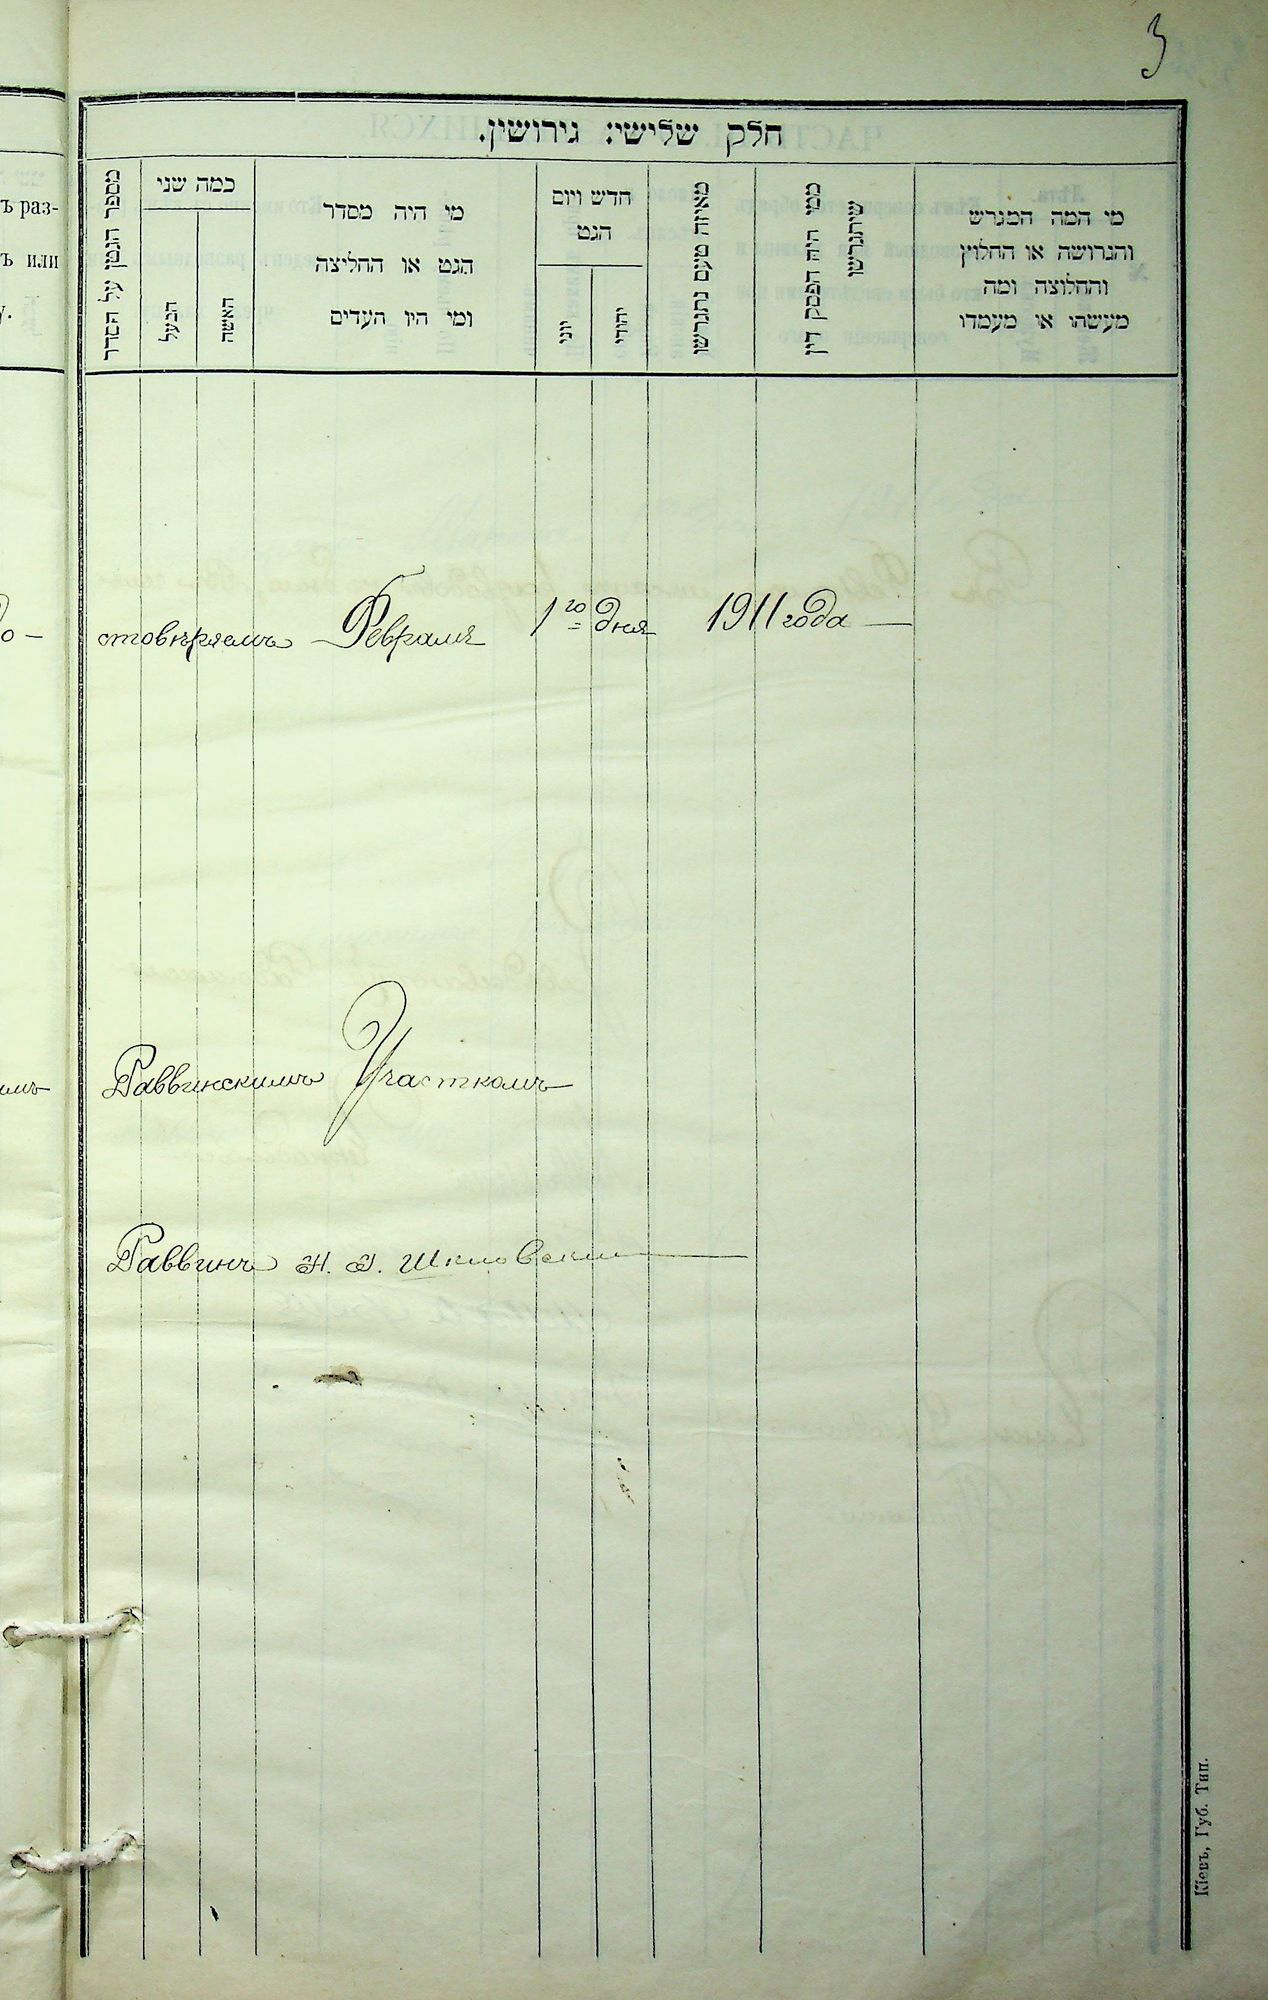 3
חלק שלישי: גירושין.
מספר הגטן על הסדר
כמה שני
הבעל
האשה
מי היה מסדר
הגט או החליצה
ומי היו העדים
חדש ויום
הגט
יוני
יהודי
מאיזה טעם נתגרשו
ממי היה הפסק דין
שיתגרשו
מי המה המגרש
והגרושה או החלוץ
והחלוצה ומה
מעשהו או מעמדו
ъ раз-
ъ или
у.
до-
стовѣряемъ Февраля 1го дня 1911 года
имъ
Раввинскимъ Участкомъ
Раввинъ
Кіевъ, Губ. Тип.